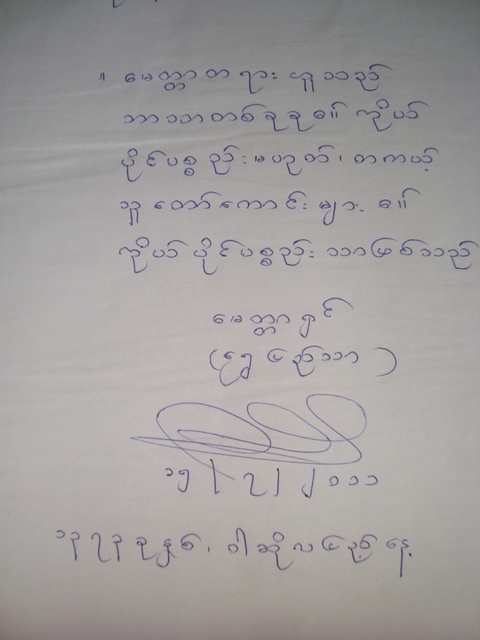 " မေတ္တာတရား ဟူသည်
ဘာသာတစ်ခုခု၏ ကိုယ်
ပိုင်ပစ္စည်း မဟုတ်၊ တကယ့်
သူတော်ကောင်း များ ၏
ကိုယ်ပိုင်ပစ္စည်း သာဖြစ်သည်
မေတ္တာရှင်
(ရွှေပြည်သာ)
၁၅/၇/၂၀၁၁
၁၃၇၃ ခုနှစ်၊ ဝါဆိုလပြည့်နေ့